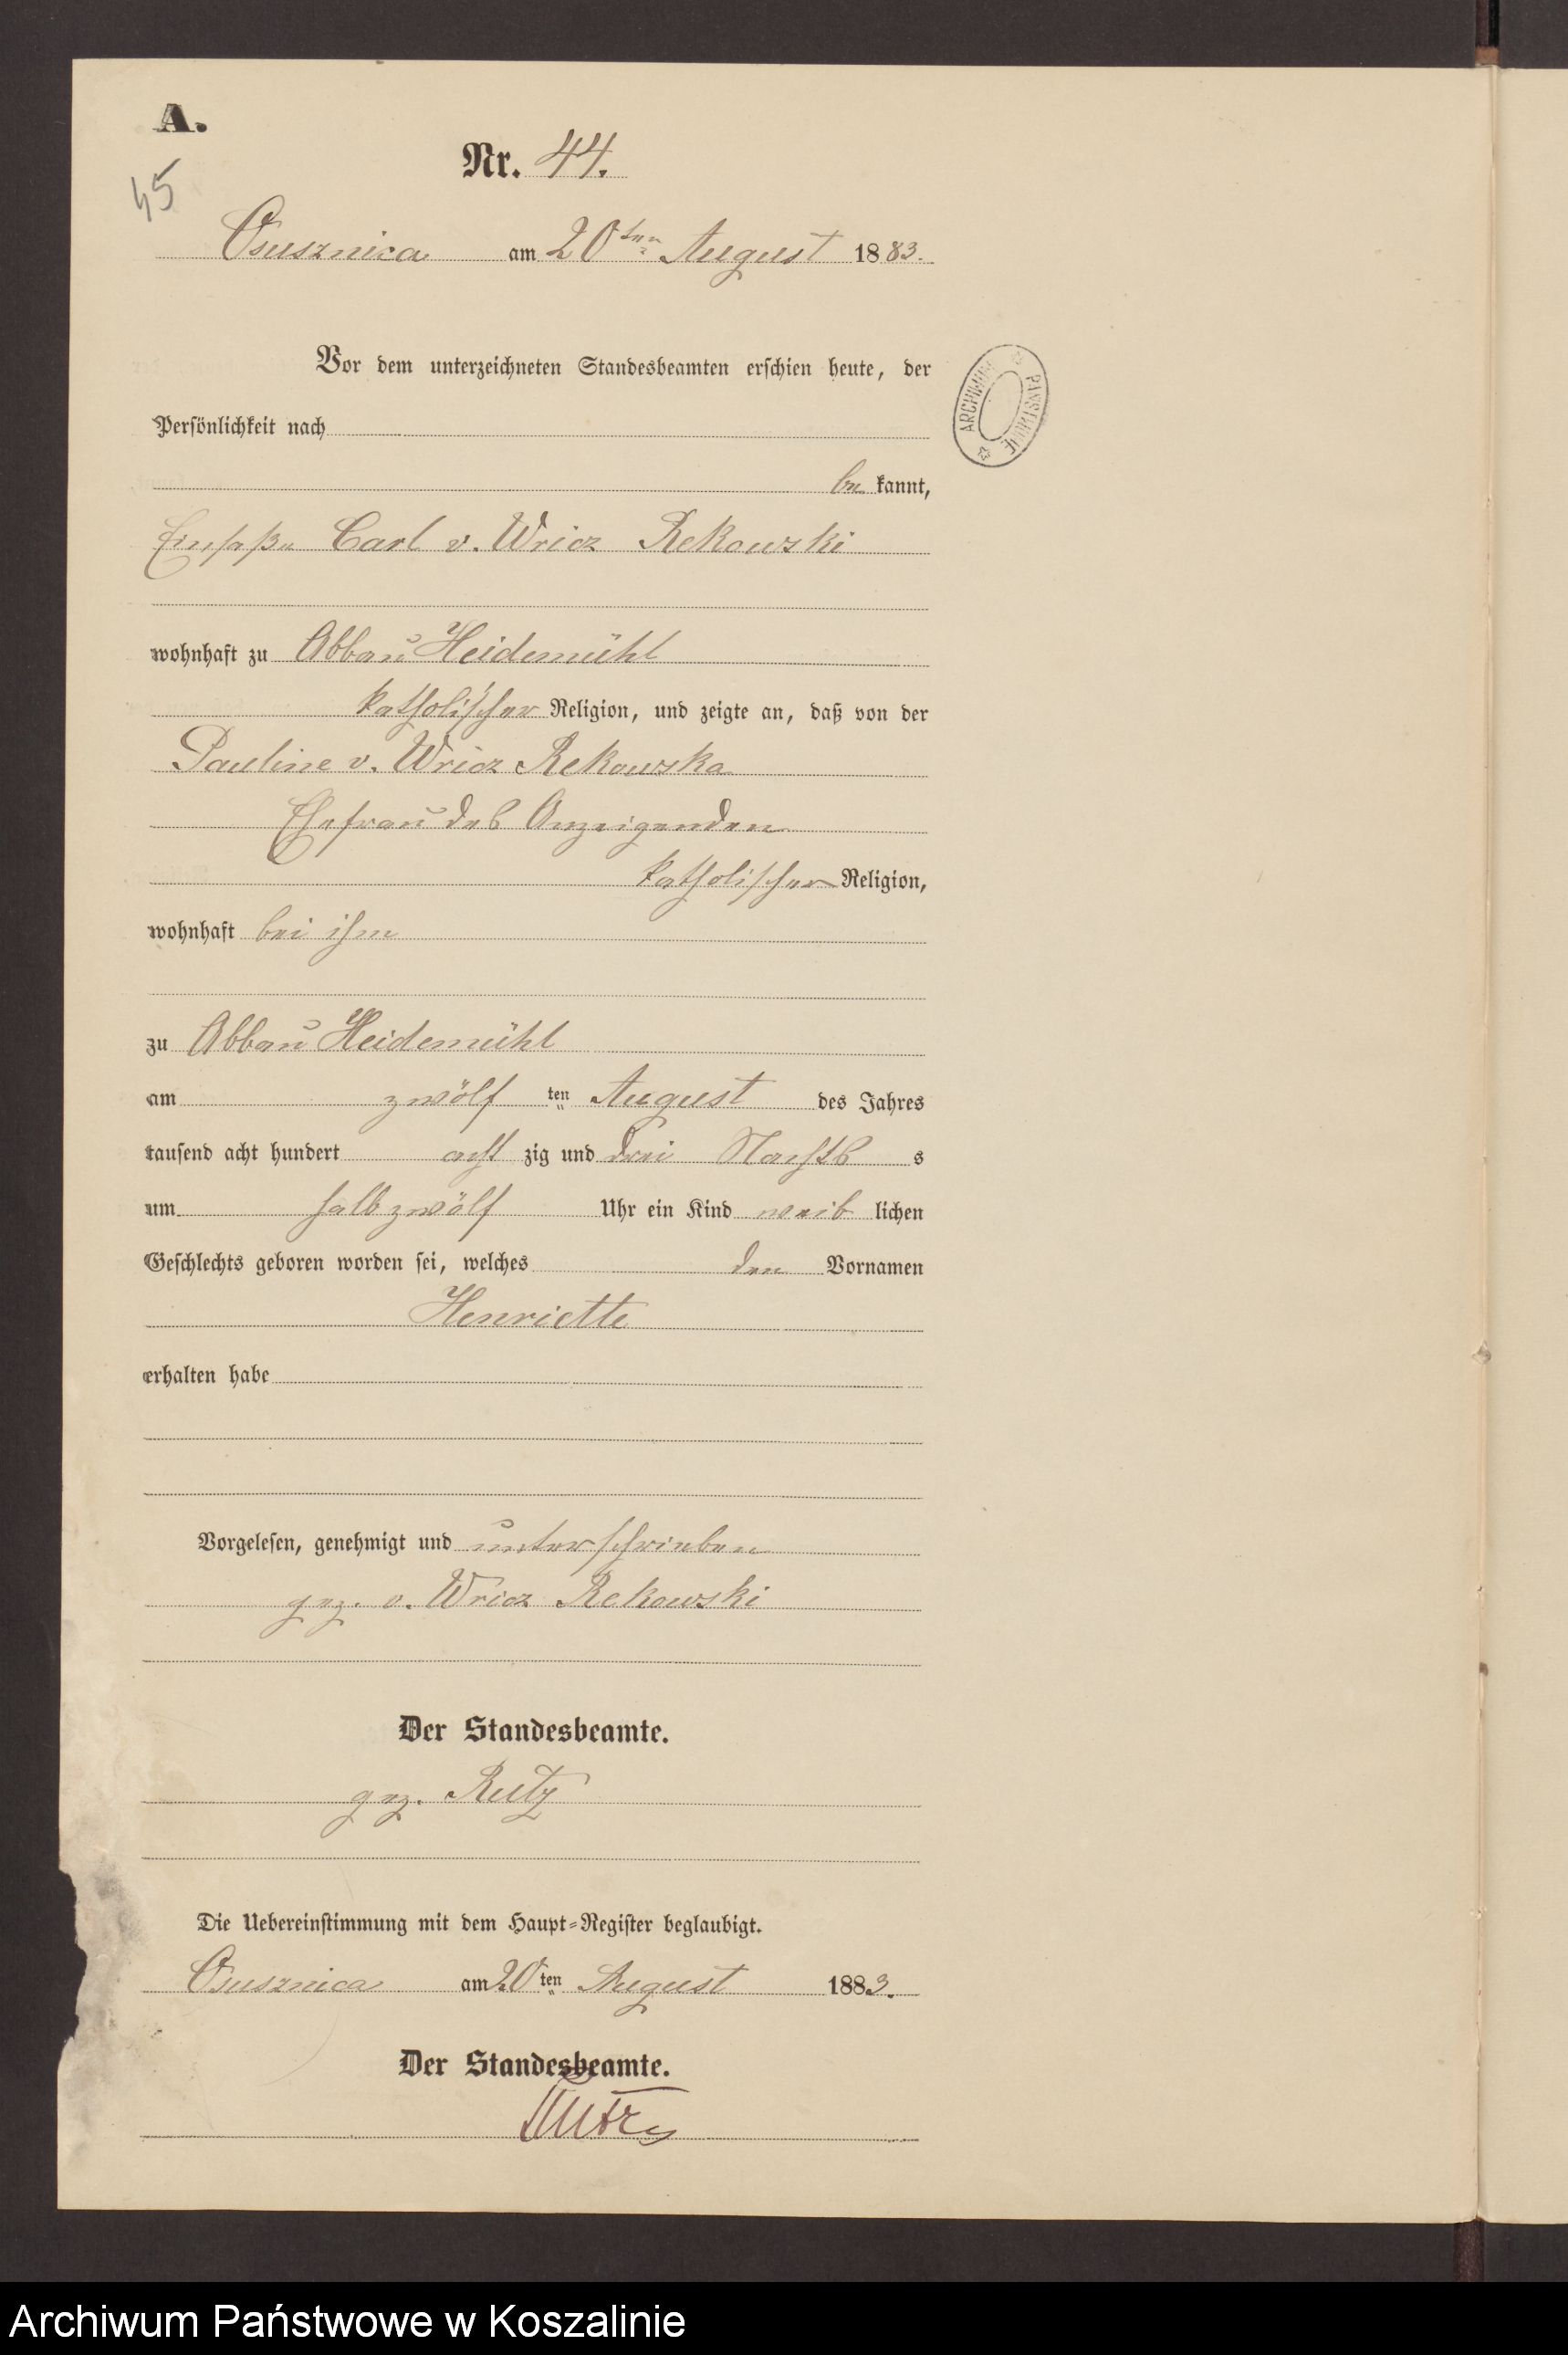 A.
45
Nr. 44.
Osusznica am 20ten August 1883.
Vor dem unterzeichneten Standesbeamten erschien heute, der
Persönlichkeit nach
be kannt,
Einsaße Carl v. Wricz Rekowski
wohnhaft zu Abbau Heidemühl
katholischer Religion, und zeigte an, daß von der
Pauline v. Wricz Rekowska
Ehefrau des Anzeigenden
katholischer Religion,
wohnhaft bei ihm
zu Abbau Heidemühl
am zwölf ten August des Jahres
tausend acht hundert acht zig und drei Nachts s
um halb zwölf Uhr ein Kind weib lichen
Geschlechts geboren worden sei, welches den Vornamen
Henriette
erhalten habe
Vorgelesen, genehmigt und unterschrieben
gez. v. Wricz Rekowski
Der Standesbeamte.
gez. Rutz
Die Uebereinstimmung mit dem Haupt-Register beglaubigt.
Osusznica am 20ten August 1883.
Der Standesbeamte.
Rutz
ARCHIWUM PAŃSTWOWE
Archiwum Państwowe w Koszalinie